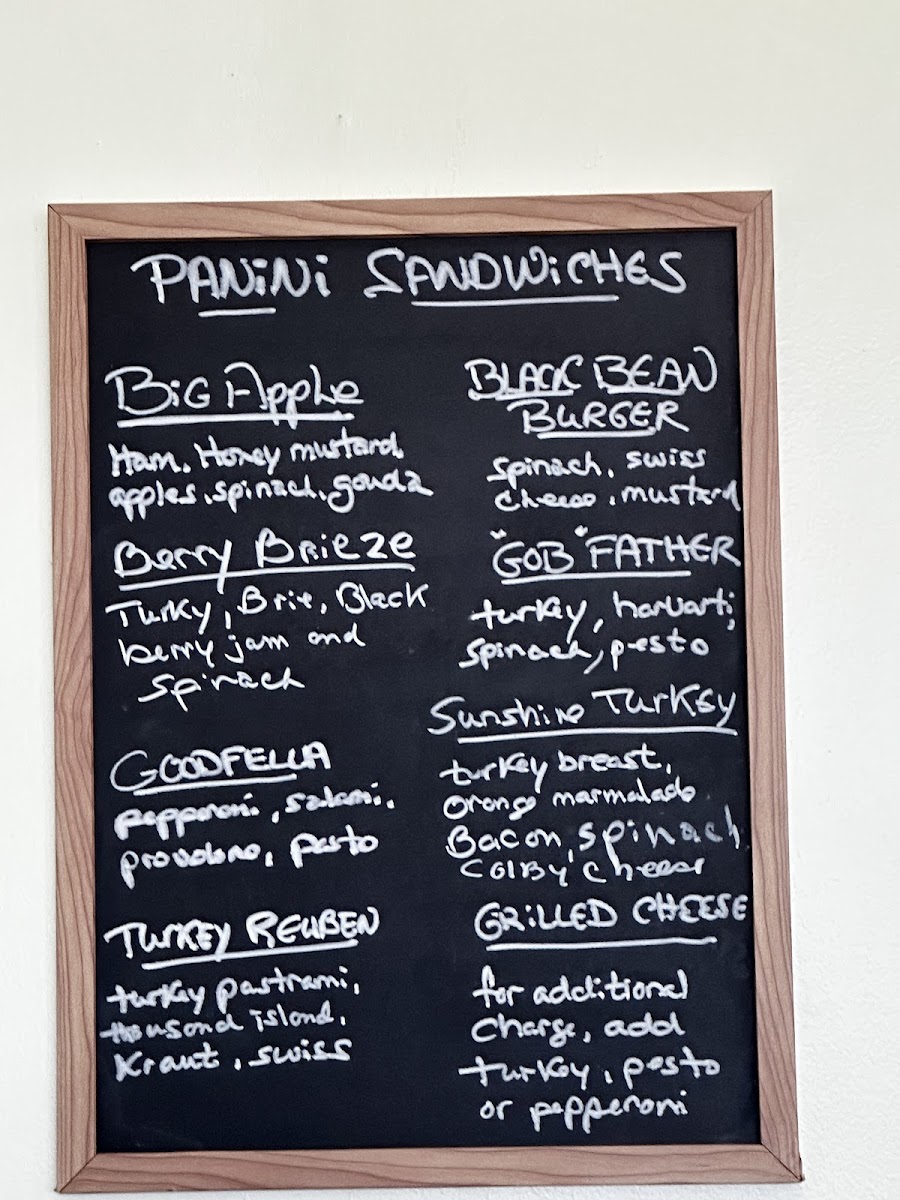 PANiNi SANDWiCHES
BiG Apple
Ham, Honey mustard,
apples, spinach, gouda
Berry BRiEZE
Turky, Brie, Black
berry jam and
spinach
GOODFELLA
pepperoni, salami,
provolone, pesto
TURKEY REUBEN
turkey pastrami,
thousond island,
Kraut, swiss
BLACK BEAN
BURGER
spinach, swiss
cheese, mustard
"GOB" FATHER
turkey, havarti,
spinach, pesto
Sunshine TURKEY
turkey breast,
orange marmalade
Bacon, spinach
COLBY cheese
GRiLLED CHEESE
for additional
charge, add
turkey, pesto
or pepperoni